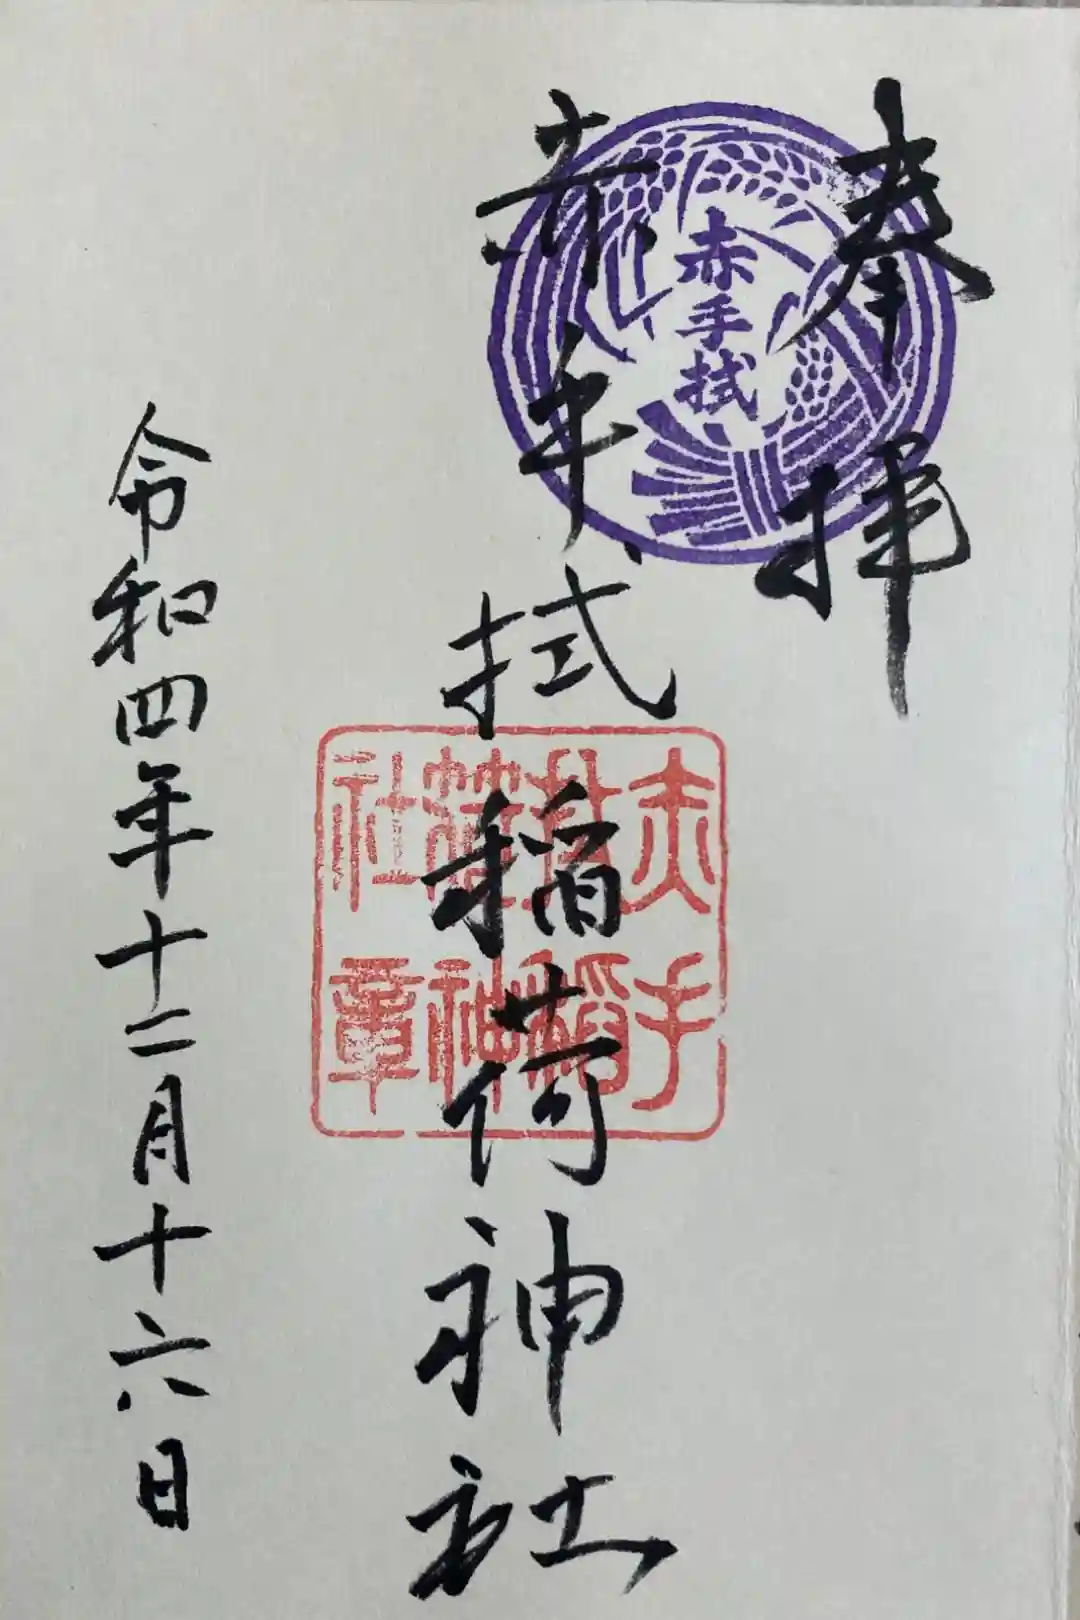 奉拝
赤手拭
赤手拭稲荷神社
赤手
拭稲
荷神
社章
令和四年十二月十六日